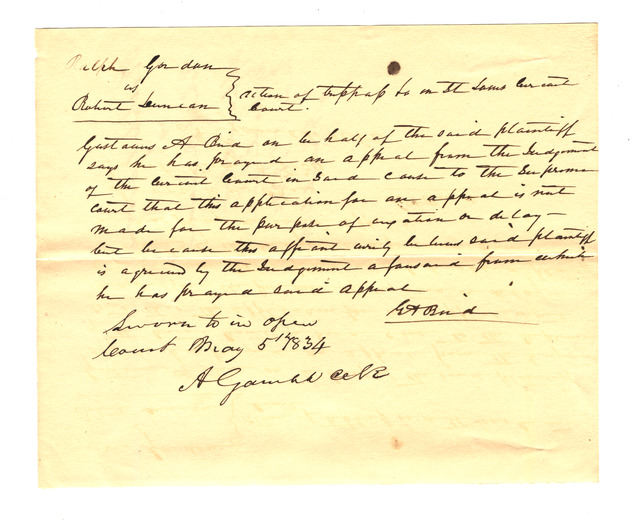 Ralph Gordon
vs
Robert Duncan
action of trespass &c in St Louis Circuit
Court.
Gustavus A Bird on behalf of the said plaintiff
says he has prayed an appeal from the Judgement
of the Circuit Court in said cause to the Supreme
court that this application for an appeal is not
made for the purpose of vexation or delay—
but because this affiant verily believes said plaintiff
is agrieved by the Judgement aforesaid from which
he has prayed said appeal
G A Bird
Sworn to in open
Court May 5th 1834
A Gamble Clk